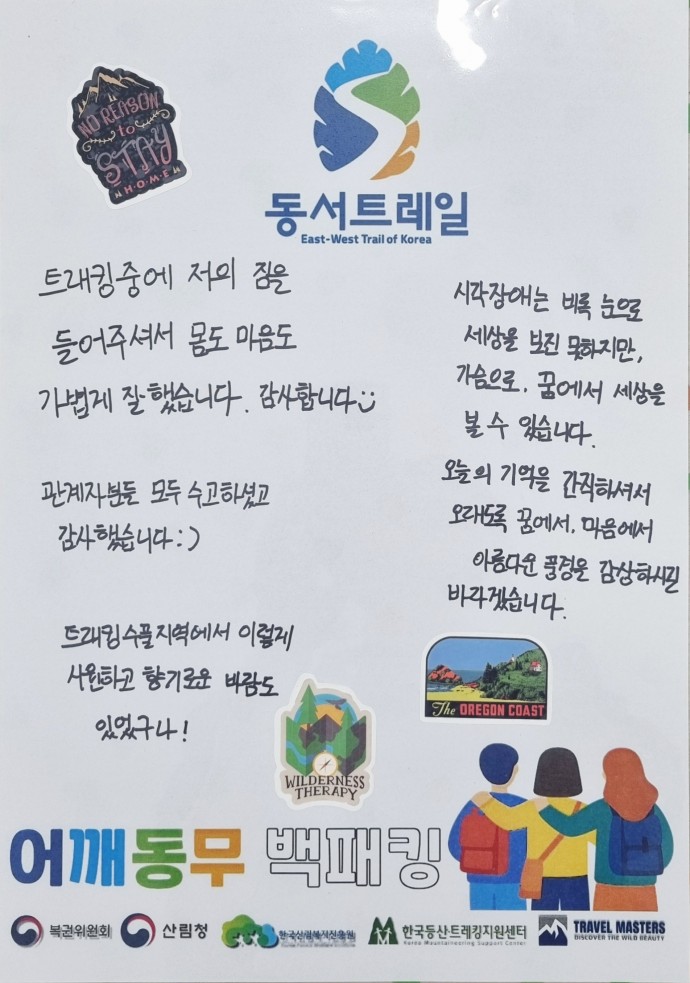 NO REASON
to
STAY
HOME
동서트레일
East-West Trail of Korea
트래킹중에 저의 짐을
들어주셔서 몸도 마음도
가볍게 잘했습니다. 감사합니다
관계자분들 모두 수고하셨고
감사했습니다:)
트래킹수풀지역에서 이렇게
시원하고 향기로운 바람도
있었구나!
시각장애는 비록 눈으로
세상을 보진 못하지만,
가슴으로, 꿈에서 세상을
볼 수 있습니다.
오늘의 기억을 간직하셔서
오래도록 꿈에서, 마음에서
아름다운 풍경을 감상하시길
바라겠습니다.
The OREGON COAST
WILDERNESS
THERAPY
어깨동무 백패킹
복권위원회
산림청
한국산림복지진흥원
한국등산·트레킹지원센터
Korea Mountaineering Support Center
TRAVEL MASTERS
DISCOVER THE WILD BEAUTY